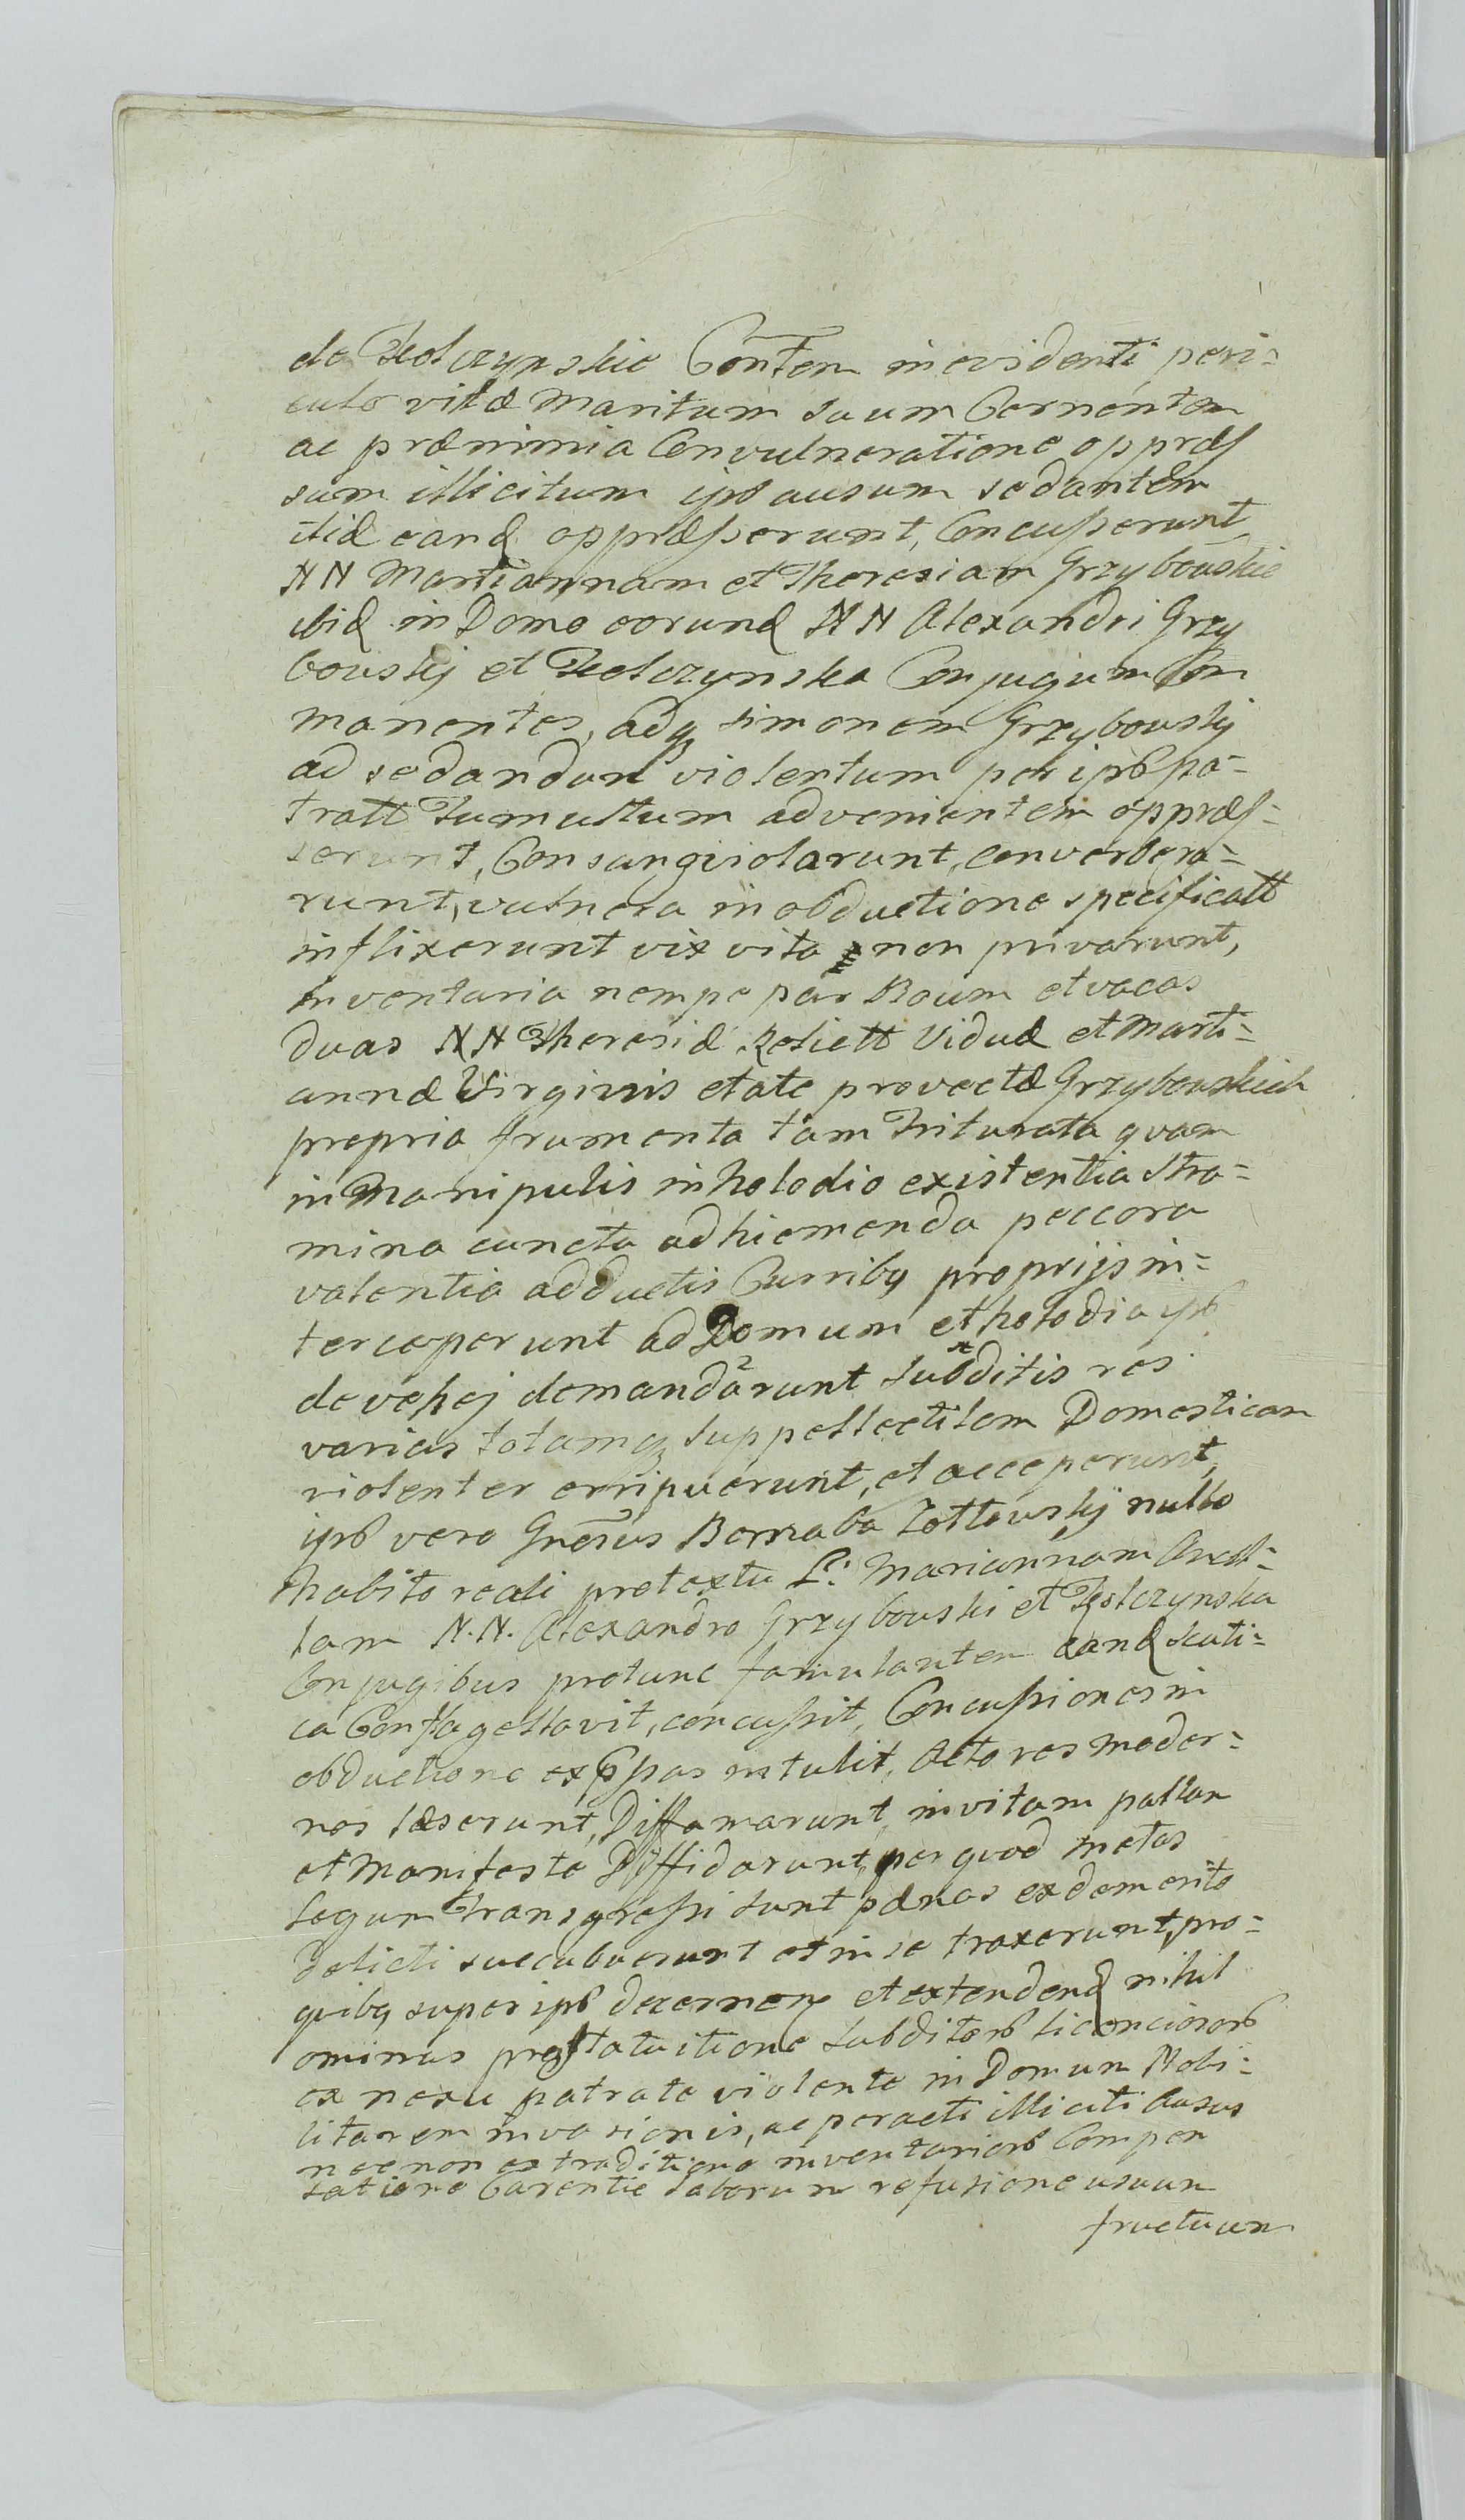 de Feolczynskie Contem in evidenti peri=
culo vitæ Maritum suum Cernentem
ac prænimia Convulneratione oppræs
sum illicitum ipō ausum sedantem
itid eand oppræsserunt, Concusserunt,
NN Martiannam et Theresiam Grzybowskie
ibid in Domo eorund NN Alexandri Grzy
bowskij et Feolczynska Conjugum Com
manentes, adq simonem Grzybowskij
ad sedandum violentum per ipō pa=
tratt Tumultum advenientem oppræs=
serunt, Consangviolarunt, converbera=
runt, vulnera in obductione specificatt
inflixerunt vix vita non privarunt,
Inventaria nempe par Boum et vacas
duas NN Theresiæ Relictt Viduæ et Marti=
annæ Virginis etate provectæ Grzybowskich
propria frumenta tam Triturata quam
in Manipulis in holodio existentia Stra=
mina cuncta ad hiemenda peccora
valentia adductis Curribq proprijs in=
terceperunt ad Domum et holodia ipō
devehej demandarunt subditis res
varias totamq suppellectilem Domesticam
violenter erripuerunt, et acceperunt,
ipō vero Gnērsus Barnaba Zottowskij nullo
habito reali pretextu L: Mariannam
lam N.N. Alexandro Grzybowski et Feolczynska
Conjugibus protunc famulantem eand scuti=
ca Conflagellavit, concussit, Concussiones in
obductione expssas intulit, Actores moder=
nos læserunt, Diffamarunt, in vitam pallam
et Manifeste Diffidarunt, per quod metas
Legum Transgressi sunt pænas ex demerito
Delicti succubuerunt et in se traxerunt, pro=
quibq super ipō decernen et extendend nihil
ominus pro statuitione subditorō licenciosorō
ex nexu patrate violente in Domum Nobi=
litarem invasionis, ac peracti illiciti Ausus
nec non ex traditione inventariorō Compen
satione Carentie laborum refusione usuum
fructuum